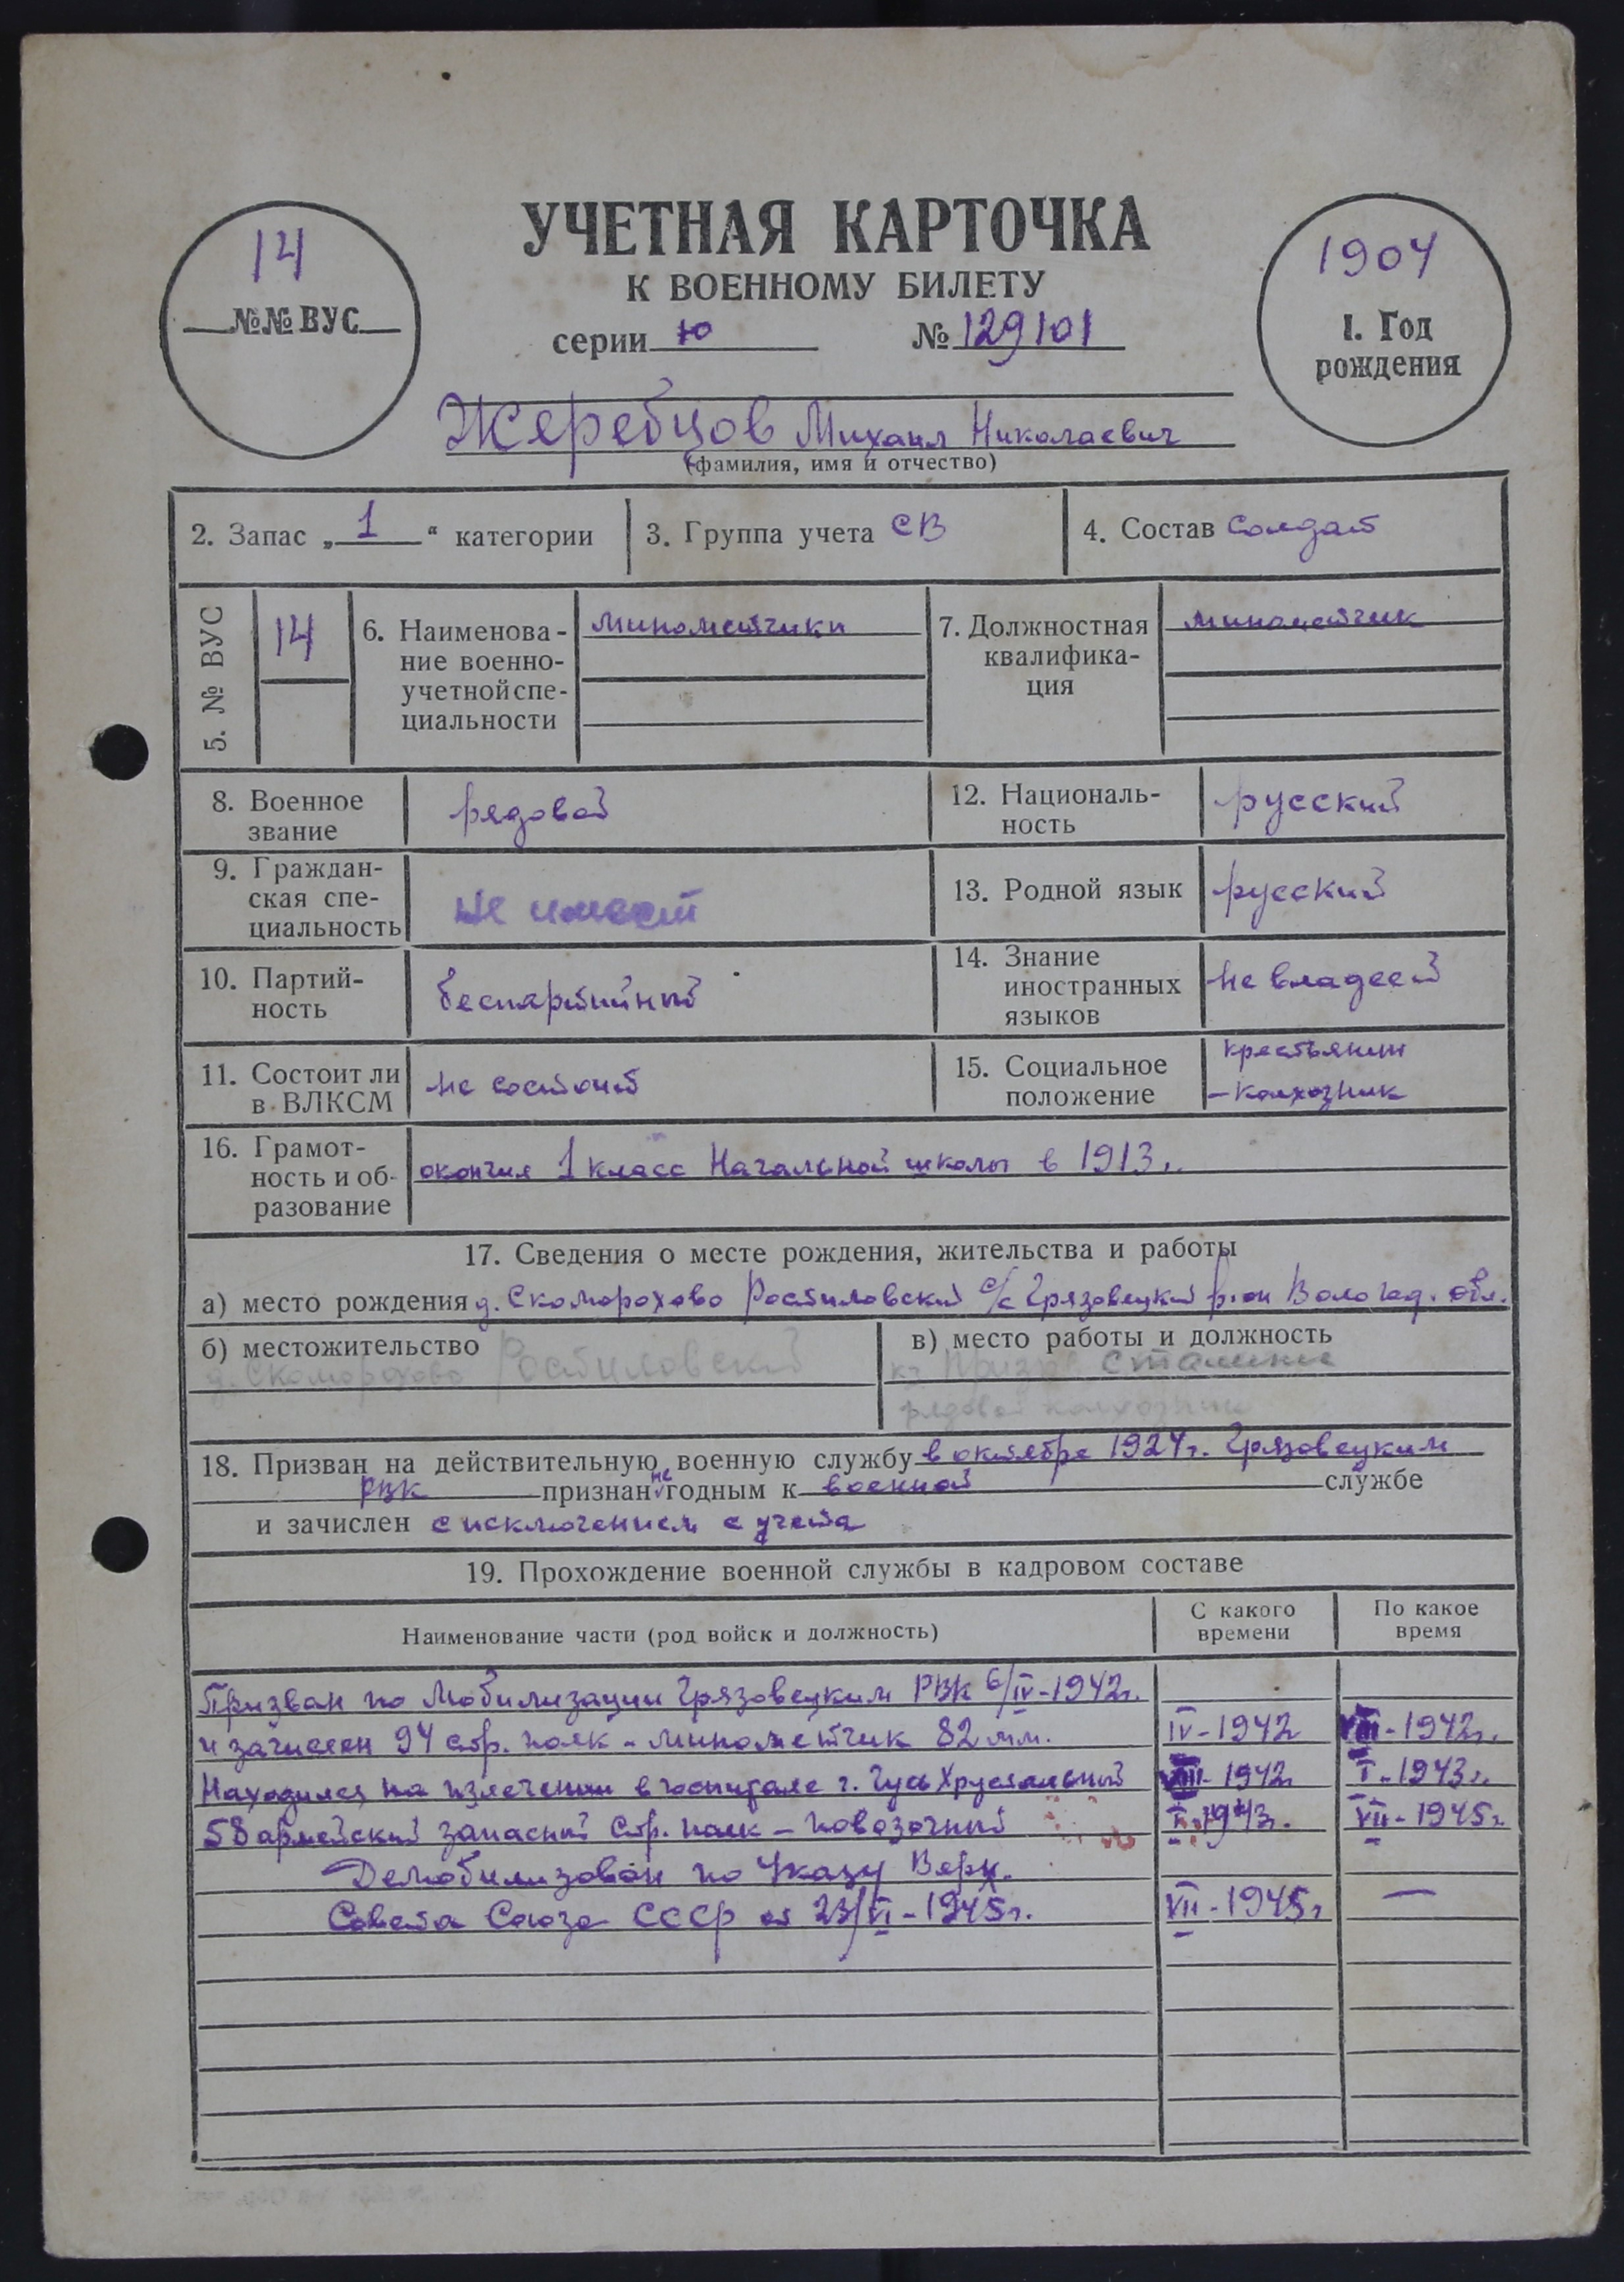 УЧЕТНАЯ КАРТОЧКА
К ВОЕННОМУ БИЛЕТУ
серии ю № 129101
14
№№ ВУС
1904
1. Год
рождения
Жеребцов Михаил Николаевич
(фамилия, имя и отчество)
2. Запас „ 1 “ категории
3. Группа учета СВ
4. Состав солдат
5. № ВУС
14
6. Наименова-
ние военно-
учетной спе-
циальности
минометчики
7. Должностная
квалифика-
ция
минометчик
8. Военное
звание
рядовой
12. Националь-
ность
русский
9. Граждан-
ская спе-
циальность
не имеет
13. Родной язык русский
10. Партий-
ность
беспартийный
14. Знание
иностранных
языков
не владеет
11. Состоит ли
в ВЛКСМ
не состоит
15. Социальное
положение
крестьянин
-колхозник
16. Грамот-
ность и об-
разование
окончил 1 класс Начальной школы в 1913г.
17. Сведения о месте рождения, жительства и работы
а) место рождения д. Скоморохово Ростиловский с/с Грязовецкий р-он Вологод. обл.
б) местожительство
д. Скоморохово Ростиловский
в) место работы и должность
к-з Призыв Сталина
рядовой колхозник
18. Призван на действительную военную службу в октябре 1927г. Грязовецким
РВК признан не годным к военной службе
и зачислен с исключением с учета
19. Прохождение военной службы в кадровом составе
Наименование части (род войск и должность)
С какого
времени
По какое
время
Призван по Мобилизации Грязовецким РВК 6/IV-1942г.
и зачислен 94 стр. полк - минометчик 82 мм. IV-1942 VIII-1942г.
Находился на излечении в госпитале г. Гусь Хрустальный VIII-1942 I-1943г.
58 армейский запасный стр. полк - повозочный I-1943г. VII-1945г.
Демобилизован по Указу Верх.
Совета Союза СССР от 23/VI-1945г. VII-1945г —